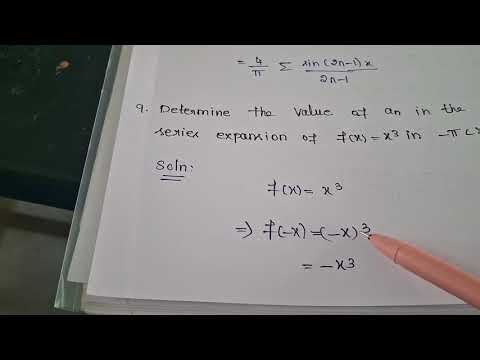 = 4/π Σ sin(2n-1)x / 2n-1
9. Determine the value of an in the
series expansion of f(x) = x³ in -π <
Soln:
f(x) = x³
=> f(-x) = (-x)³
= -x³